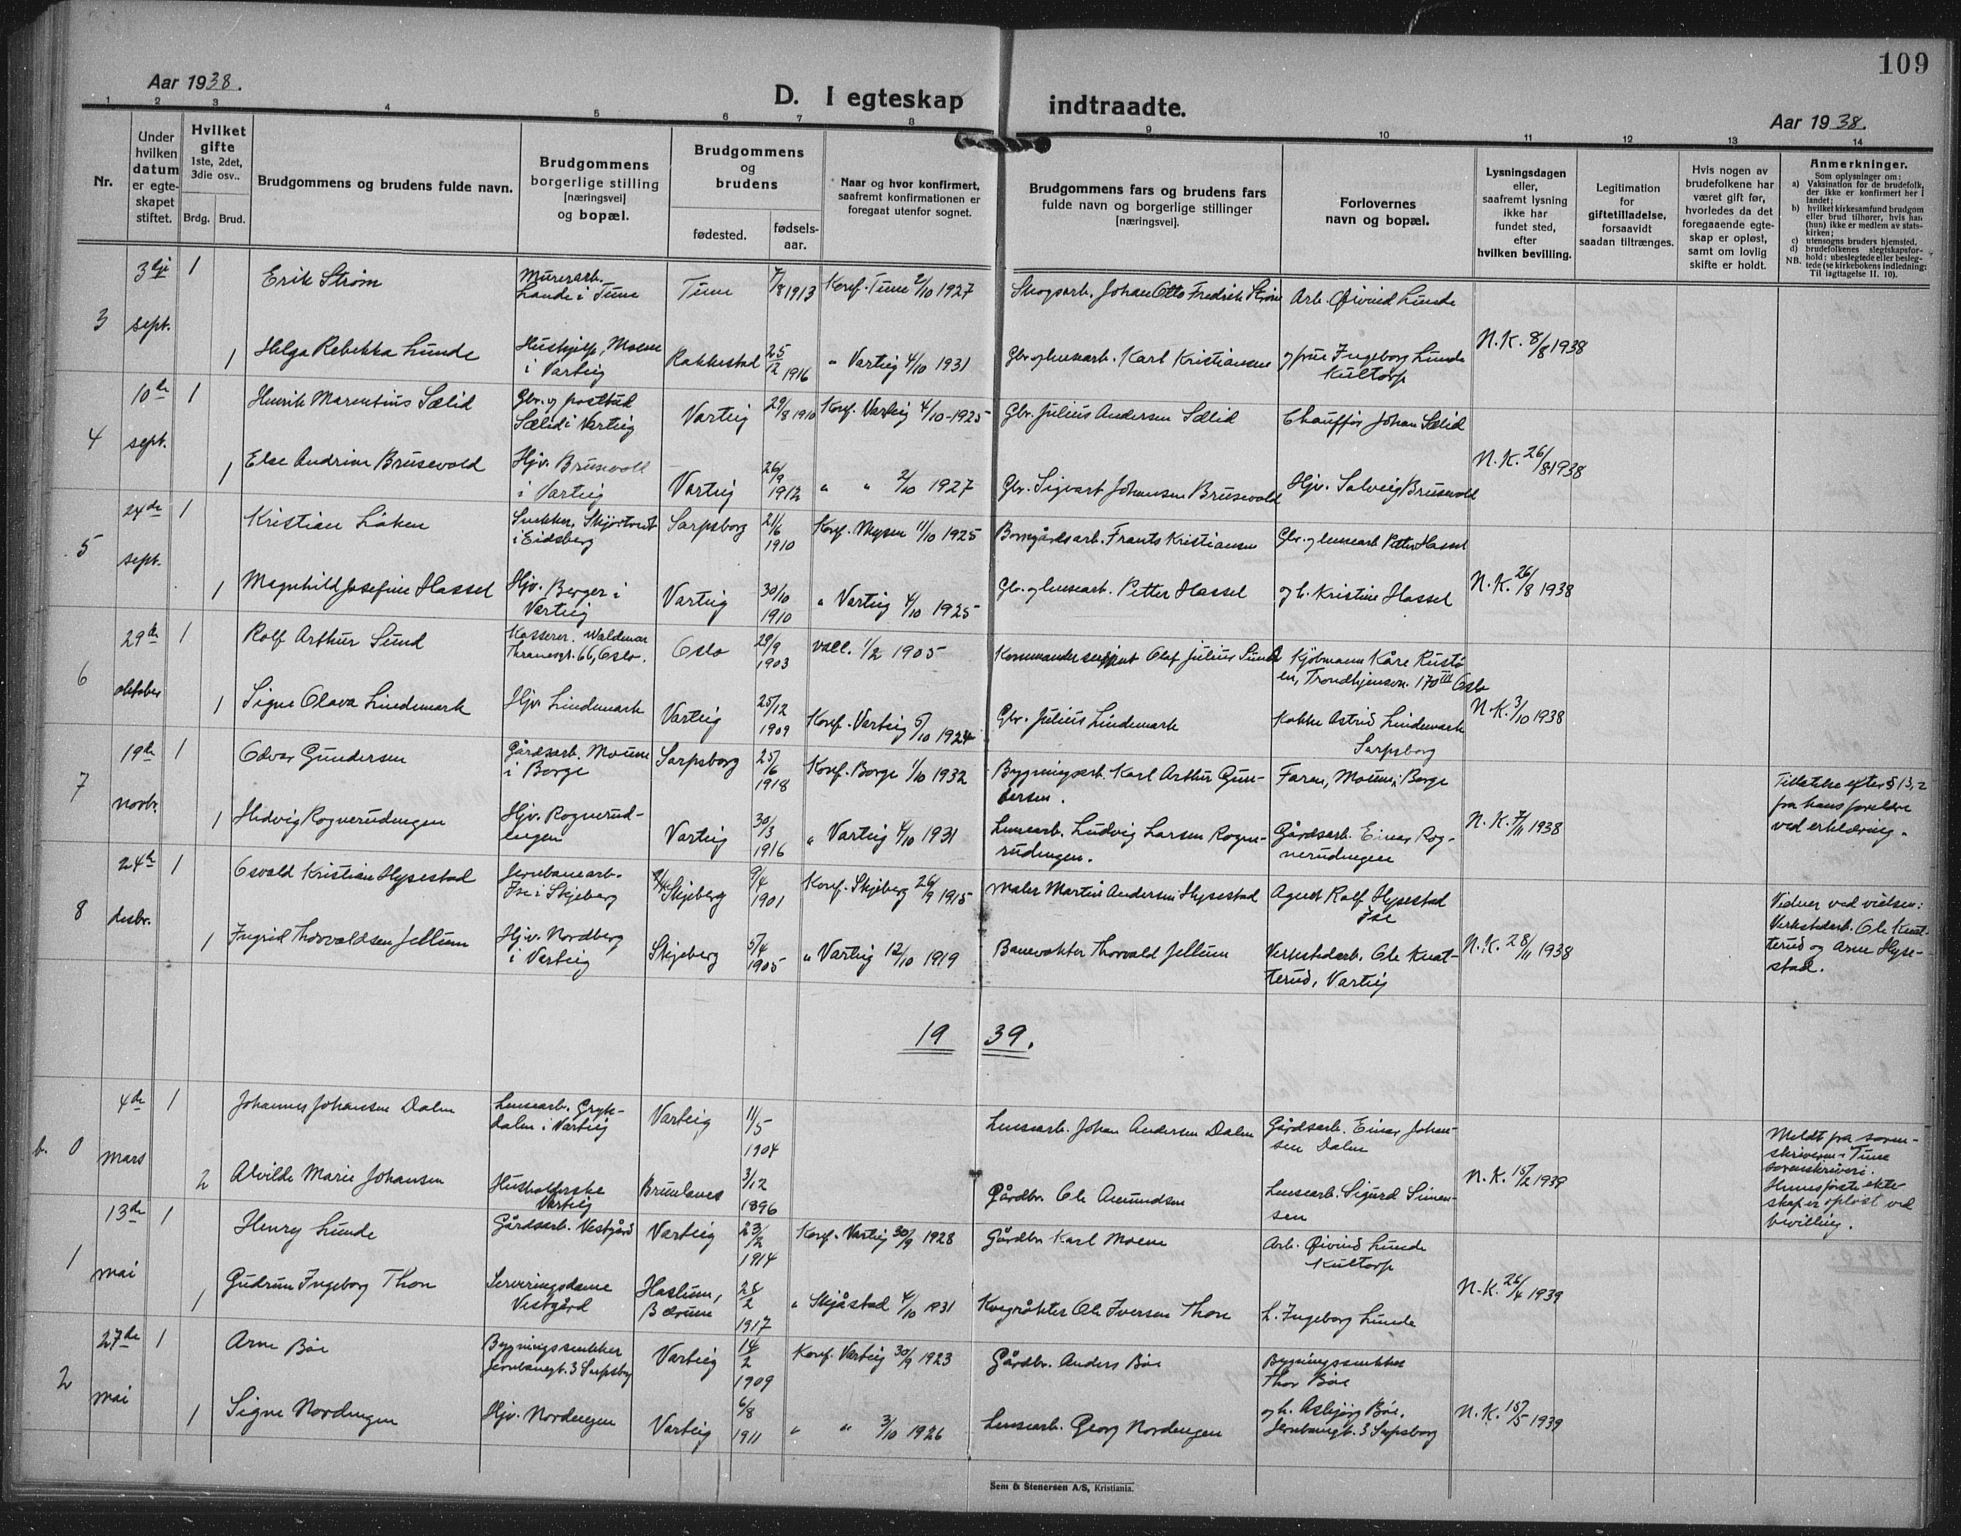 109
Aar 1938.
D. I egteskap indtraadte.
Aar 1938.
1 2 3 4 5 6 7 8 9 10 11 12 13 14
Nr.
Under hvilken datum er egteskapet stiftet.
Hvilket gifte 1ste, 2det, 3die osv..
Brdg. Brud.
Brudgommens og brudens fulde navn.
Brudgommens borgerlige stilling [næringsvei] og bopæl.
Brudgommens og brudens
fødested.
fødselsaar.
Naar og hvor konfirmert, saafremt konfirmationen er foregaat utenfor sognet.
Brudgommens fars og brudens fars fulde navn og borgerlige stillinger [næringsvei].
Forlovernes navn og bopæl.
Lysningsdagen eller, saafremt lysning ikke har fundet sted, efter hvilken bevilling.
Legitimation for giftetilladelse, forsaavidt saadan tiltrænges.
Hvis nogen av brudefolkene har været gift før, hvorledes da det foregaaende egteskap er opløst, samt om lovlig skifte er holdt.
Anmerkninger.
Som oplysninger om:
a) Vaksination før de brudefolk, der ikke er konfirmert her i landet;
b) hvilket kirkesamfund brudgom eller brud tilhører, hvis han (hun) ikke er medlem av statskirken;
c) utensogns bruders hjemsted.
d) brudefolkenes slegtskapsforhold: ubeslegtede eller beslegtede (se kirkebokens indledning: Til iagttagelse II. 10).
NB.
3 3dje sept. 1 Erik Strøm Murerarb. Lande i Tune Tune 7/8 1913 Konf. Tune 2/10 1927 Skogsarb. Johan Otto Fredrik Strøm Arb. Øivind Lunde
1 Helga Rebekka Lunde Hushjelp, Moene i Varteig Rakkestad 25/12 1916 " Varteig 4/10 1931 Gbr. og lensearb. Karl Kristiansen og frue Ingeborg Lunde Kultorp N.K. 8/8 1938
4 10de sept. 1 Henrik Marentius Sælid Gbr. og postbud Sælid i Varteig Varteig 29/8 1910 Konf. Varteig 4/10-1925 Gbr. Julius Andersen Sælid Chauffør Johan Sælid
1 Else Andrine Brusevold Hjv. Brusevold i Varteig Varteig 26/9 1912 " " 2/10 1927 Gbr. Sigvart Johansen Brusevold Hjv. Solveig Brusevold N.K. 26/8 1938
5 24de sept. 1 Kristian Løken Snekker, i Eidsberg Sarpsborg 21/6 1910 Konf. Mysen 11/10 1925 Bomgårdsarb. Frants Kristiansen Gbr. og lensearb Petter Hassel
1 Magnhild Josefine Hassel Hjv. Berger i Varteig Varteig 30/10 1910 " Varteig 4/10 1925 Gbr. og lensearb. Petter Hassel og h. Kristine Hassel N.K. 26/8 1938
6 29de oktober 1 Rolf Arthur Sund Kasserer. Waldemar Thranesgt. 66, Oslo. Oslo 29/9 1903 vacc. 1/2 1905 Kommandersersjant Olaf Julius Sund Kjøbmann Kåre Rustøen, Trondhjemsv. 170 III Oslo
1 Signe Olava Lindemark Hjv. Lindemark Varteig 25/12 1909 Konf. Varteig 5/10 1924 Gbr. Julius Lindemark Kokke Astrid Lindemark Sarpsborg N.K. 3/10 1938
7 19de novbr. 1 Odvar Gundersen Gårdsarb. Moum i Borge Sarpsborg 25/6 1918 Konf. Borge 1/10 1932 Bygningsarb. Karl Arthur Gundersen. Faren, Moum, Borge Tillatelse efter § 13,2 fra hans foreldre ved erklæring.
1 Hedvig Rognerudengen Hjv. Rognerudengen Varteig 30/3 1916 " Varteig 4/10 1931 Lensearb. Ludvig Larsen Rognerudengen. Gårdsarb. Einar Rognerudengen N.K. 7/11 1938
8 24de desbr. 1 Osvald Kristian Hysestad Jernbanearb. Ise i Skjeberg Skjeberg 9/4 1901 Konf. Skjeberg 26/9 1915 Maler Martin Andersen Hysestad Agent Rolf Hysestad Ise Vidner ved vielsen: Verkstedarb. Ole Knatterud og Arne Hysestad.
1 Ingrid Thorvaldsen Jellum Hjv. Nordberg i Varteig Skjeberg 5/4 1905 " Varteig 12/10 1919 Banevokter Thorvald Jellum Verkstedarb. Ole Knatterud, Varteig N.K. 28/11 1938
1939.
b. 0 4de mars 1 Johannes Johansen Dalen Lensearb. Grytdalen i Varteig Varteig 11/5 1904 Lensearb. Johan Andersen Dalen Gårdsarb. Einar Johansen Dalen Meldt fra sorenskriveren i Tune sorenskriveri. Hennes første ekteskap er opløst ved bevilling.
2 Alvilde Marie Johansen Husholderske Varteig Brunlanes 3/12 1896 Gårdbr. Ole Amundsen Lensearb. Sigurd Simensen N.K. 15/2 1939
1 13de mai 1 Henry Lunde Gårdsarb. Vestgård Varteig 23/2 1914 Konf. Varteig 30/9 1928 Gårdbr. Karl Moene Arb. Øivind Lunde Kultorp
1 Gudrun Ingeborg Thon Serveringsdame Vestgård Haslum, Bærum 28/2 1917 " Skjåstad 4/10 1931 Kvegrøkter Ole Iversen Thon h. Ingeborg Lunde N.K. 26/4 1939
2 27de mai 1 Arne Bøe Bygningssnekker Jernbanegt. 3 Sarpsborg Varteig 14/2 1909 Konf. Varteig 30/9 1923 Gårdbr. Anders Bøe Bygningssnekker Thor Bøe
1 Signe Nordengen Hjv. Nordengen Varteig 6/8 1911 " " 3/10 1926 Lensearb. Georg Nordengen og h. Asbjørg Bøe, Jernbanegt. 3 Sarpsborg N.K. 15/5 1939
Sem & Stenersen A/S, Kristiania.